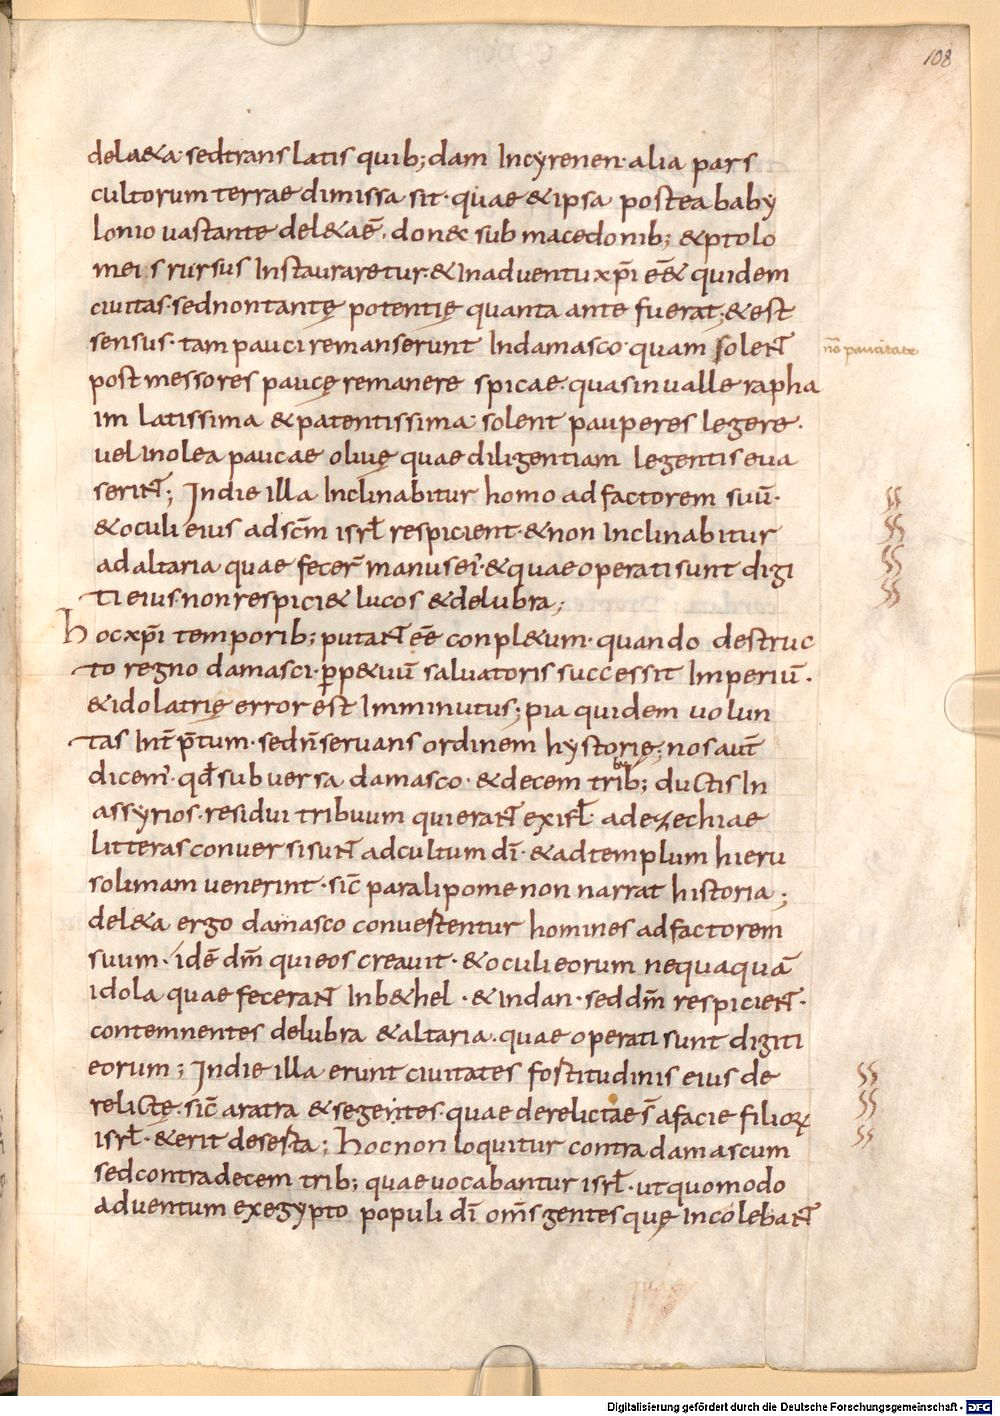 108
dela&a· sedtranslatis quib; dam Incyrenen· alia pars
cultorum terrae dimissa sit· quae &ipsa postea baby
lonio uastante del&aē· don&c sub macedonib; &ptolo
meis rursus Instauraretur· &Inaduentu xp̄i eē& quidem
ciuitas· sednontantę potentię quanta ante fuerat; &est
sensus· tam pauci remanserunt Indamasco· quam solent
post messores paucę remanere spicae· quasinualle rapha
im latissima &patentissima solent pauperes legere·
uel Inolea paucae oliuę quae diligentiam legentis eua
serint; Indie illa Inclinabitur homo adfactorem suū·
&oculi eius adsc̄m isrl̄ respicient· &non Inclinabitur
adaltaria quae fecer̄ manus ei᾽· &quae operati sunt digi
ti eius· non respici& lucos &delubra;
hoc xp̄i temporib; putant eē̄ conpl&um· quando destruc
to regno damasci· p̄p&uū saluatoris successit Imperiū·
&idolatrię error est Imminutus; pia quidem uolun
tas Int̄ p̄tum· sed n̄ seruans ordinem hystorię; nos aut̄
dicem᾽· qd̄ subuersa damasco· &decem trib; ductis In
bus
assyrios· residui tribuum quierant exisrl̄ adezechiae
litteras conuersi sunt adcultum dī· &adtemplum hieru
solimam uenerint· sic̄ paralipomenon narrat historia;
del&a ergo damasco conuertentur homines adfactorem
suum· idē dm̄ quieos creauit· &oculi eorum nequaquā
idola quae fecerant Inb&hel· &Indan· sed dm̄ respicient·
contemnentes delubra &altaria· quae operati sunt digiti
eorum; Indie illa erunt ciuitates fortitudinis eius de
relictę· sic̄ aratra &segetes· quae derelictae s̄ afacie filiorꝫ
isrl̄· &erit deserta; hoc non loquitur contra damascum
sed contradecem trib; quae uocabantur isrl̄· ut quomodo
aduentum exegypto populi dī om̄s gentes quę Incolebant
nō paucitate
Digitalisierung gefördert durch die Deutsche Forschungsgemeinschaft - DFG